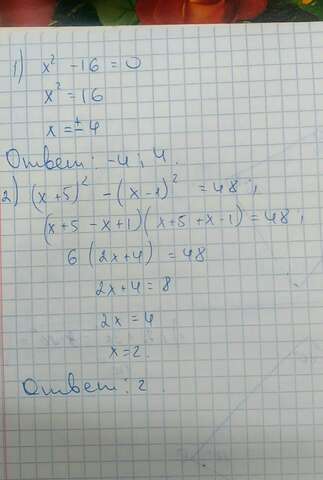 1) x² - 16 = 0
x² = 16
x = ± 4
Ответ: -4; 4.
2) (x+5)² - (x-1)² = 48;
(x+5-x+1)(x+5+x-1) = 48;
6(2x+4) = 48
2x+4 = 8
2x = 4
x = 2.
Ответ: 2.